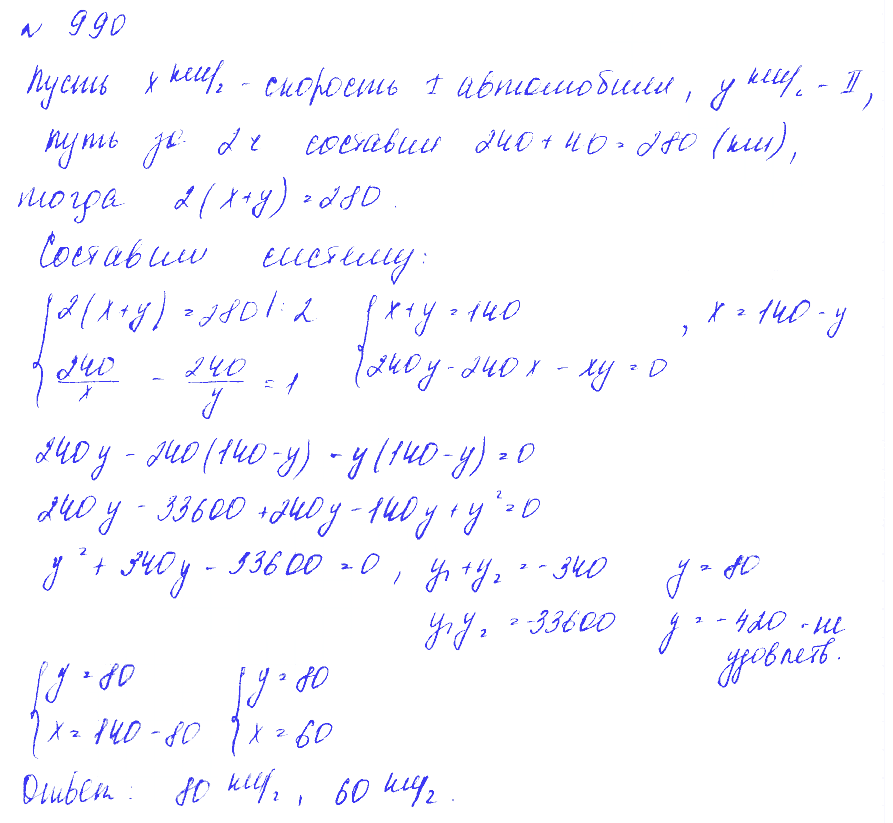 № 990
Пусть x км/ч - скорость I автомобиля, y км/ч - II,
путь за 2 ч составил 240 + 40 = 280 (км),
тогда 2(x+y) = 280.
Составим систему:
{ 2(x+y) = 280 |: 2    { x+y = 140    , x = 140 - y
240/x - 240/y = 1    240y - 240x - xy = 0
240y - 240(140-y) - y(140-y) = 0
240y - 33600 + 240y - 140y + y² = 0
y² + 340y - 33600 = 0, y₁ + y₂ = -340    y = 80
y₁y₂ = -33600    y = -420 - не
удовлетв.
{ y = 80    { y = 80
x = 140 - 80    x = 60
Ответ: 80 км/ч, 60 км/ч.